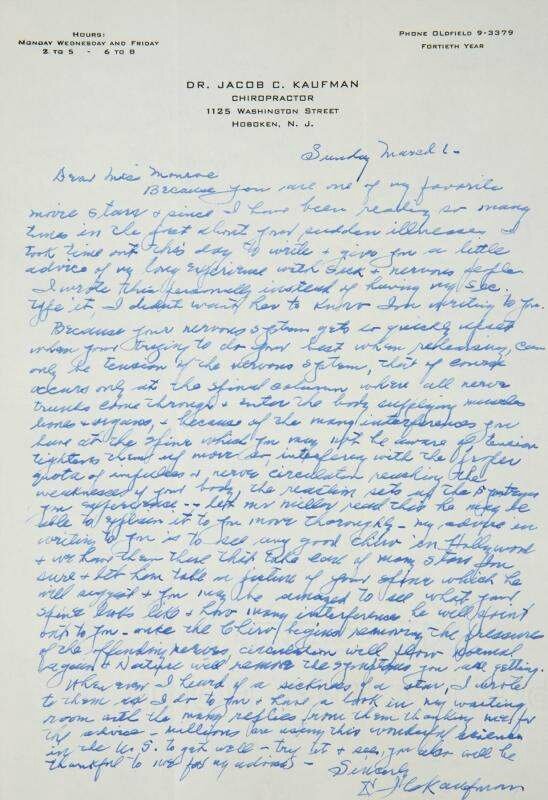 Hours:
Monday Wednesday and Friday
2 to 5 - 6 to 8
Phone OLdfield 9-3379
Fortieth Year
Dr. Jacob C. Kaufman
Chiropractor
1125 Washington Street
Hoboken, N. J.
Sunday March 6-
Dear Miss Monroe
Because you are one of my favorite
movie stars & since I have been reading so many
times in the past about your sudden illnesses I
took time out this day to write & give you a little
advice of my long experience with sick & nervous people
I wrote this personally instead of having my sec.
type it, I didn't want her to know I'm writing to you.
Because your nervous system gets so quickly upset
when your trying to do your best when rehearsing, can
only be tension of the nervous system, that of course
occurs only at the spinal column where all nerve
trunks come through & enter the body supplying muscles
bones & organs, & because of the many interferences you
have at the spine which you may not be aware of tension
tightens them up more so interfering with the proper
quota of impulses & nerve circulation reaching the
weaknesses of your body, the reaction sets up the symptoms
you experience -- let Mr Miller read this he may be
able to explain it to you more thoroughly - my advice in
writing to you is to see any good chiro in Hollywood
& we have them there that take care of many stars
sure & let him take a picture of your spine which he
will suggest & you may be amazed to see what your
spine looks like & how many interferences he will point
out to you - once the Chiro begins removing the pressures
of the offending nerves, circulation will flow normal
again & Nature will remove the symptoms you are getting.
When ever I heard of a sickness of a star, I wrote
to them as I do to you & have a book in my waiting
room with the many replies from them thanking me for
my advice - millions are using this wonderful science
in the U. S. to get well - try it & see, you also will be
thankful to me for my advice -
Sincerely
Dr J C Kaufman